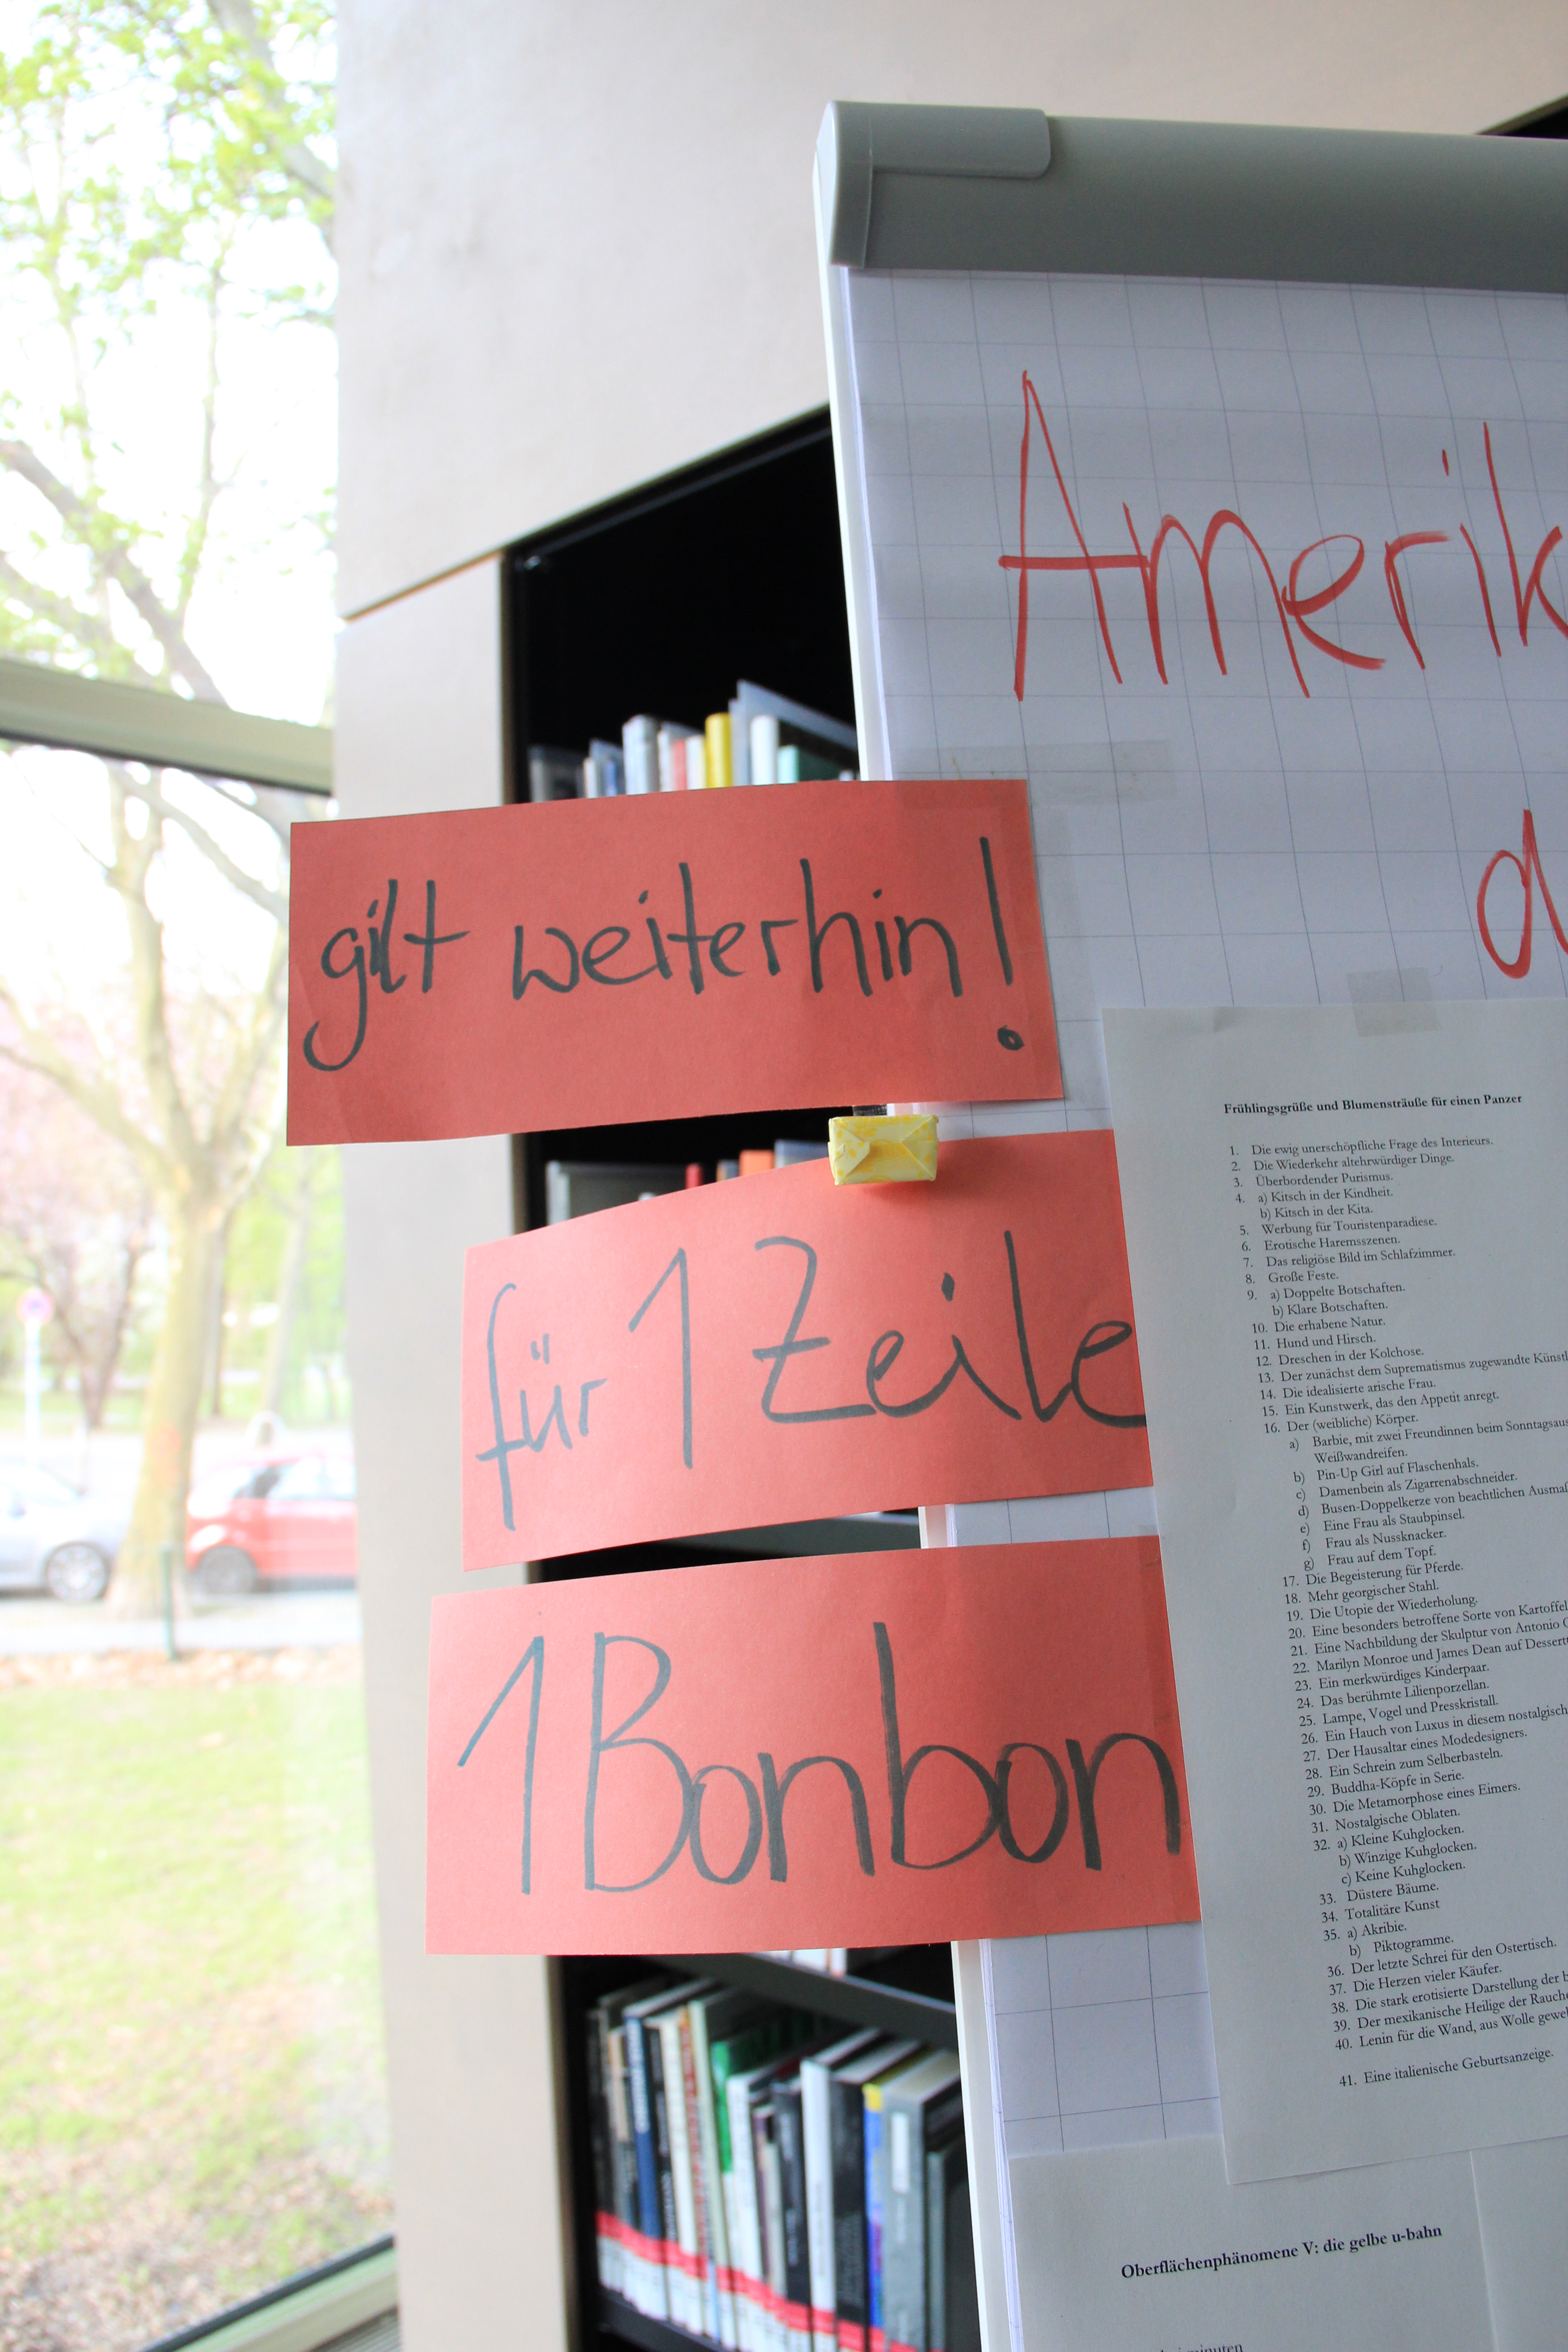 Amerik
d
gilt weiterhin!
für 1 Zeile
1 Bonbon
Frühlingsgrüße und Blumensträuße für einen Panzer
1. Die ewig unerschöpfliche Frage des Interieurs.
2. Die Wiederkehr altehrwürdiger Dinge.
3. Überbordender Purismus.
4. a) Kitsch in der Kindheit.
b) Kitsch in der Kita.
5. Werbung für Touristenparadiese.
6. Erotische Haremsszenen.
7. Das religiöse Bild im Schlafzimmer.
8. Große Feste.
9. a) Doppelte Botschaften.
b) Klare Botschaften.
10. Die erhabene Natur.
11. Hund und Hirsch.
12. Dreschen in der Kolchose.
13. Der zunächst dem Suprematismus zugewandte Künstl
14. Die idealisierte arische Frau.
15. Ein Kunstwerk, das den Appetit anregt.
16. Der (weibliche) Körper.
a) Barbie, mit zwei Freundinnen beim Sonntagsaus
Weißwandreifen.
b) Pin-Up Girl auf Flaschenhals.
c) Damenbein als Zigarrenabschneider.
d) Busen-Doppelkerze von beachtlichen Ausmaß
e) Eine Frau als Staubpinsel.
f) Frau als Nussknacker.
g) Frau auf dem Topf.
17. Die Begeisterung für Pferde.
18. Mehr georgischer Stahl.
19. Die Utopie der Wiederholung.
20. Eine besonders betroffene Sorte von Kartoffel
21. Eine Nachbildung der Skulptur von Antonio C
22. Marilyn Monroe und James Dean auf Dessert
23. Ein merkwürdiges Kinderpaar.
24. Das berühmte Lilienporzellan.
25. Lampe, Vogel und Presskristall.
26. Ein Hauch von Luxus in diesem nostalgisch
27. Der Hausaltar eines Modedesigners.
28. Ein Schrein zum Selberbasteln.
29. Buddha-Köpfe in Serie.
30. Die Metamorphose eines Eimers.
31. Nostalgische Oblaten.
32. a) Kleine Kuhglocken.
b) Winzige Kuhglocken.
c) Keine Kuhglocken.
33. Düstere Bäume.
34. Totalitäre Kunst
35. a) Akribie.
b) Piktogramme.
36. Der letzte Schrei für den Ostertisch.
37. Die Herzen vieler Käufer.
38. Die stark erotisierte Darstellung der b
39. Der mexikanische Heilige der Rauche
40. Lenin für die Wand, aus Wolle gewe
41. Eine italienische Geburtsanzeige.
Oberflächenphänomene V: die gelbe u-bahn
minuten